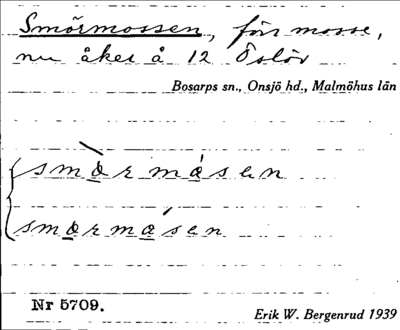 Smörmossen, förr mosse,
nu åker å 12 Öslöv
Bosarps sn., Onsjö hd., Malmöhus län
smạ̀r mạ́sen
smạrmạ́sen
Nr 5709.
Erik W. Bergenrud 1939